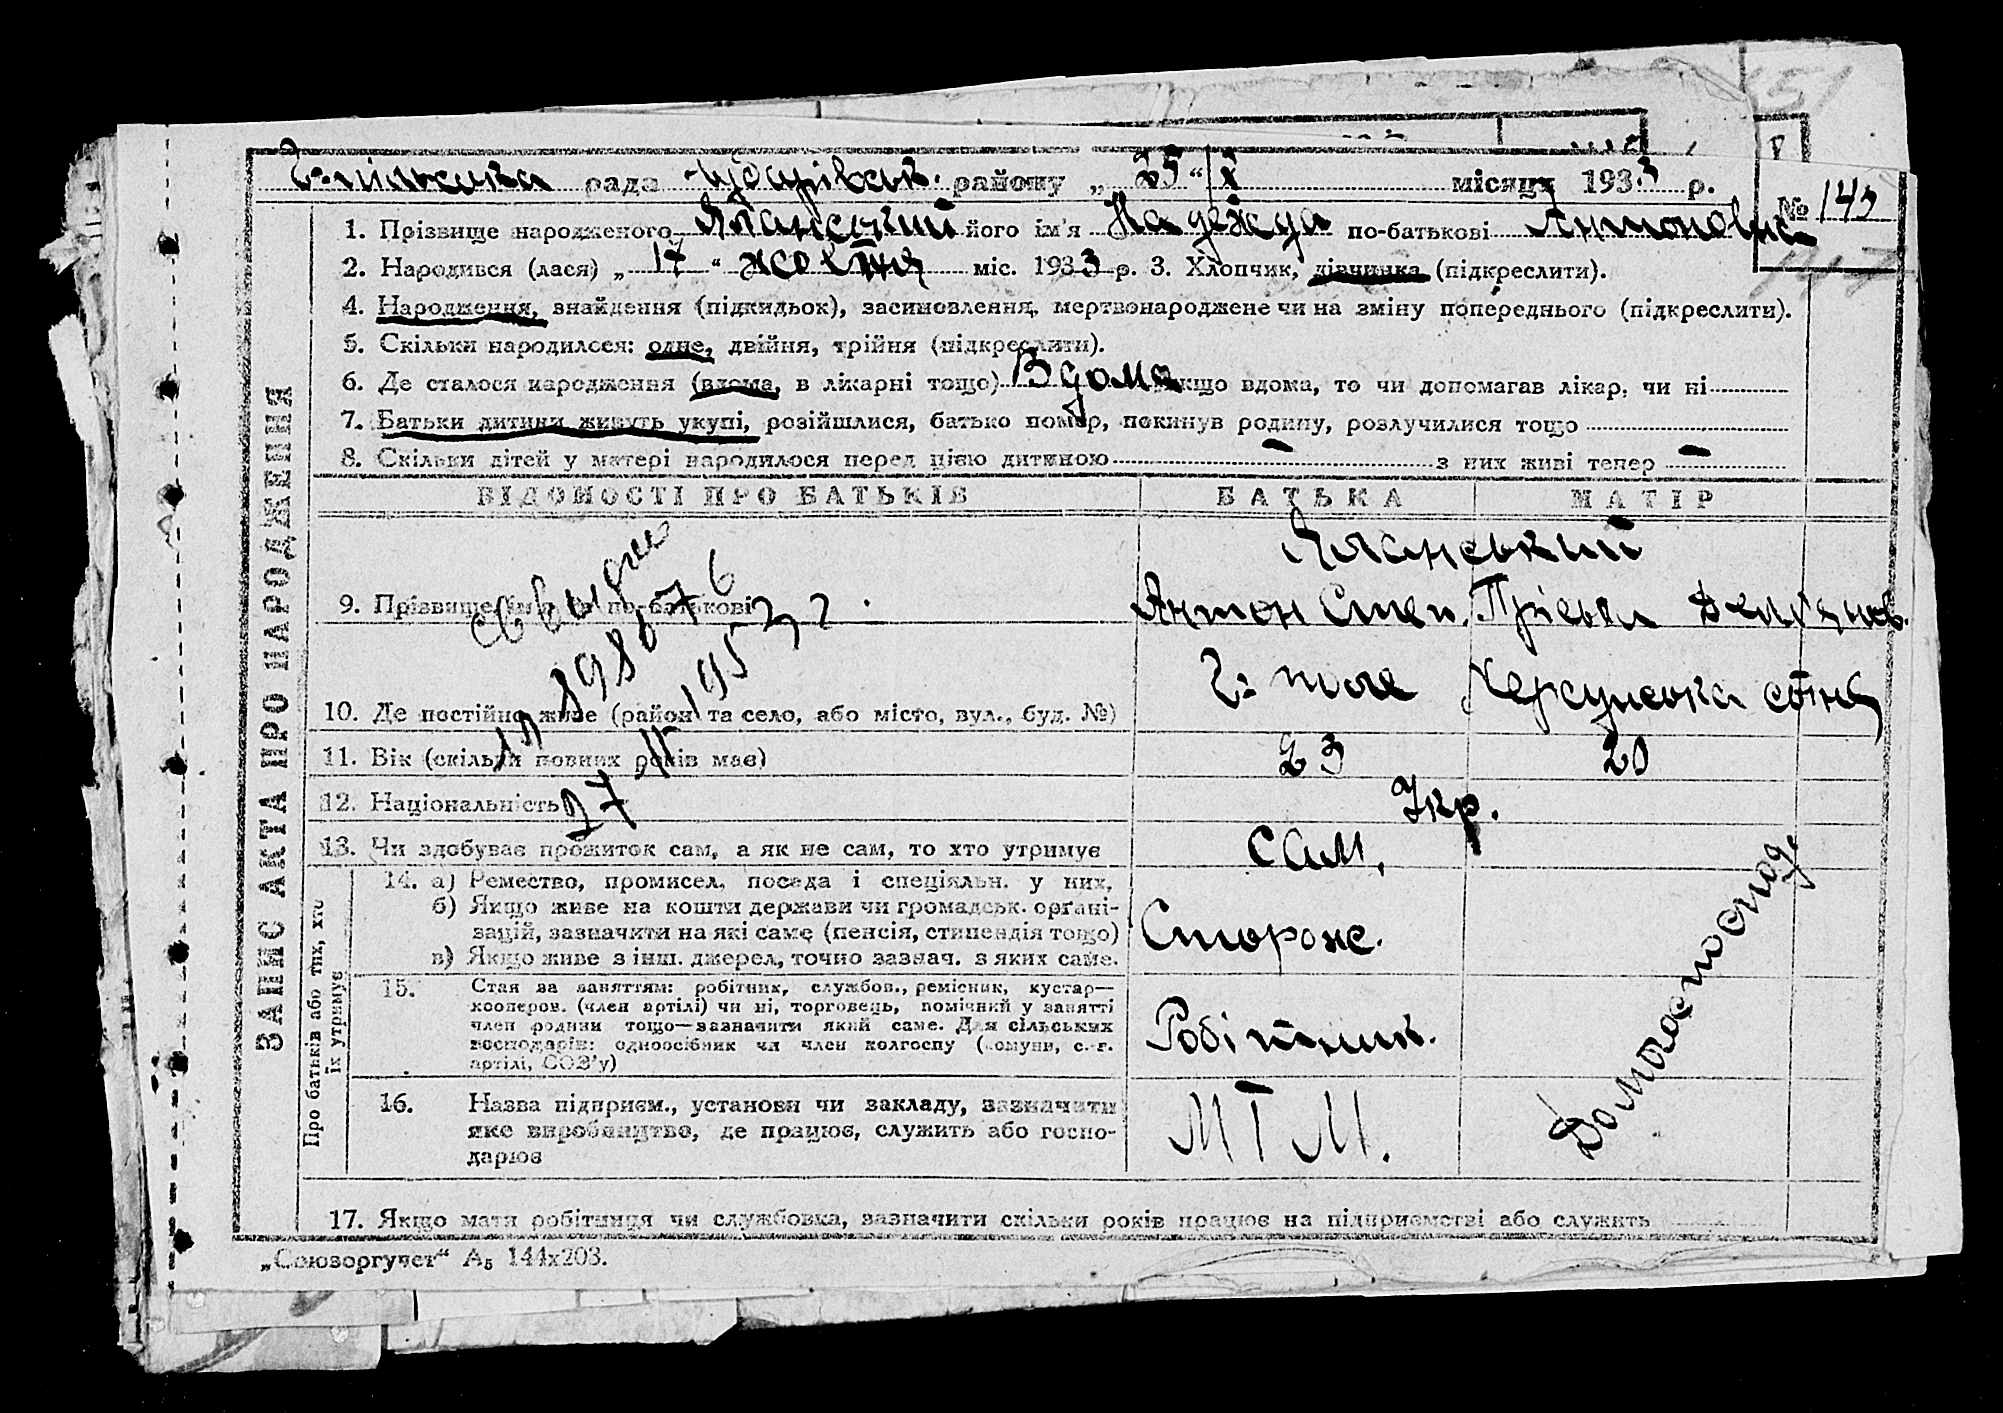 рада району „ 25 “ X місяця 1933 р.
№ 143
1. Прізвище народженого його ім'я Надежда по-батькові Антоновна
2. Народився (лася) „ 17 “ жовтня міс. 1933 р. 3. Хлопчик, дівчинка (підкреслити).
4. Народження, знайдення (підкидьок), засиновлення, мертвонароджене чи на зміну попереднього (підкреслити).
5. Скільки народилося: одне, двійня, трійня (підкреслити).
6. Де сталося народження (вдома, в лікарні тощо) Вдома якщо вдома, то чи допомагав лікар, чи ні
7. Батьки дитини живуть укупі, розійшлися, батько помер, покинув родину, розлучилися тощо
8. Скільки дітей у матері народилося перед цією дитиною — з них живі тепер —
ЗАПИС АКТА ПРО НАРОДЖЕННЯ
ВІДОМОСТІ ПРО БАТЬКІВ БАТЬКА МАТІР
9. Прізвище, ім'я та по-батькові Антон Степ. Пріська Дем'янов.
10. Де постійно живе (район та село, або місто, вул., буд. №) поле сотня
11. Вік (скільки повних років має) 23 20
12. Національність Укр.
13. Чи здобуває прожиток сам, а як не сам, то хто утримує сам,
Про батьків або тих, хто їх утримує
14. а) Ремество, промисел, посада і спеціяльн. у них,
б) Якщо живе на кошти держави чи громадськ. органі-
зацій, зазначити на які саме (пенсія, стипендія тощо) Сторож.
в) Якщо живе з інш. джерел, точно зазнач. з яких саме.
Домогоспод.
15. Стан за заняттям: робітник, службов., ремісник, кустар—
кооперов. (член артілі) чи ні, торговець, помічний у занятті
член родини тощо—зазначити який саме. Для сільських
господарів: одноосібник чи член колгоспу (комуни, с.-г.
артілі, СОЗ'у)
Робітник.
16. Назва підприєм., установи чи закладу, зазначити
яке виробництво, де працює, служить або госпо-
дарює
МТМ.
17. Якщо мати робітниця чи службовка, зазначити скільки років працює на підприємстві або служить
„Союзоргучет“ А₅ 144х203.